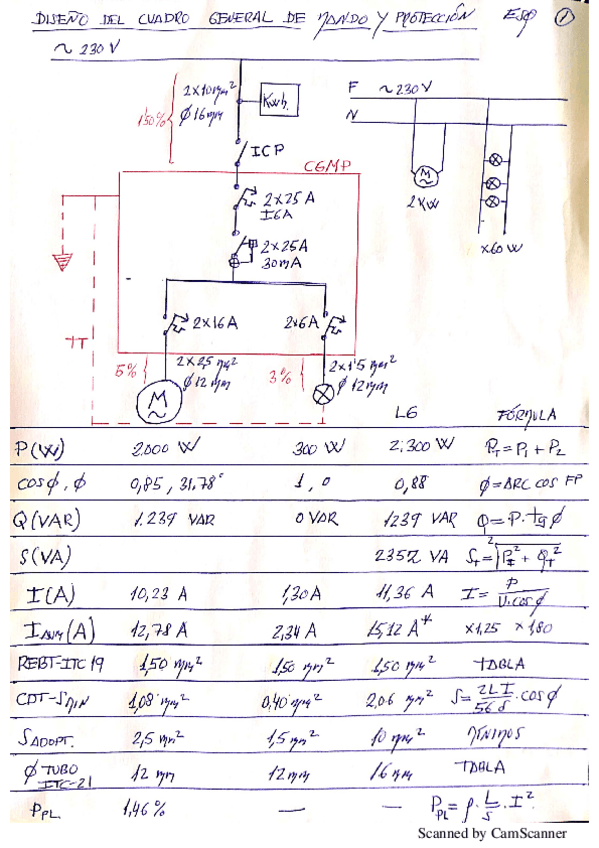 DISEÑO DEL CUADRO GENERAL DE MANDO Y PROTECCIÓN ESQ 1
~ 230 V
F ~230 V
N
2x10mm²
Ø16mm
1'50%
Kwh.
ICP
CGMP
M
2KW
x60 W
2x25 A
IGA
2x25A
30mA
2x16A
2x6A
TT
5%
2x2,5 mm²
Ø12mm
3%
2x1'5 mm²
Ø12mm
M
~
LG FÓRMULA
P(W) 2.000 W 300 W 2.300 W PT=P1+P2
cosϕ, ϕ 0,85, 31.78° 1, 0 0,88 ϕ=ARC COS FP
Q(VAR) 1.239 VAR 0 VAR 1239 VAR Q=P.tgϕ
S(VA) 2352 VA ST=²√PT²+QT²
I(A) 10,23 A 1,30A 11,36 A I=P/U.cosϕ
(A) 12,78 A 2,34 A 15,12 A* x1,25 x1,80
REBT-ITC19 1,50 mm² 1,50 mm² 1,50 mm² TABLA
CDT-SMIN 1,08 mm² 0,40 mm² 2,06 mm² S=2LI/56δ.cosϕ
SADOPT. 2,5 mm² 1,5 mm² 10 mm² MÍNIMOS
Ø TUBO ITC-21 12 mm 12mm 16mm TABLA
PPL 1,46% — — PPL=ρ.L/S.I²
Scanned by CamScanner